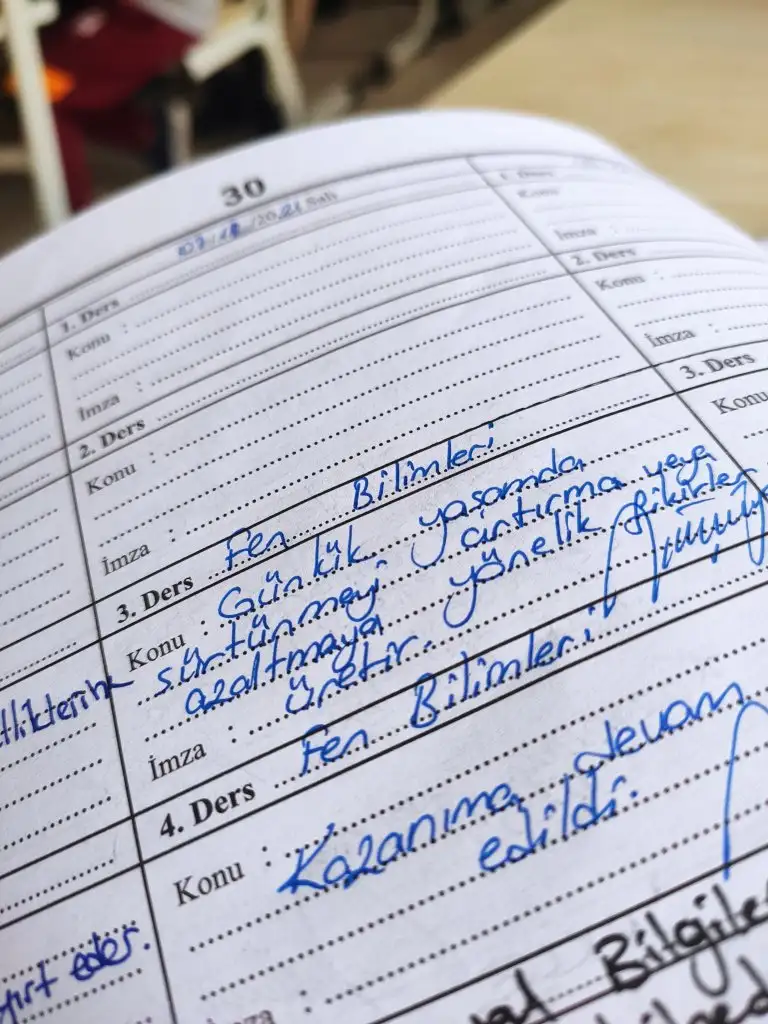 30
07/12/2021 Salı
1. Ders
Konu :
İmza :
2. Ders
Konu :
İmza :
3. Ders Fen Bilimleri
Konu : Günlük yaşamda
sürtünmeyi artırma veya
azaltmaya yönelik fikirler
üretir.
İmza :
4. Ders Fen Bilimleri
Konu : Kazanıma devam
edildi.
İmza :
Bilgiler
eder.
1. Ders
Konu
İmza
2. Ders
Konu :
İmza :
3. Ders
Konu